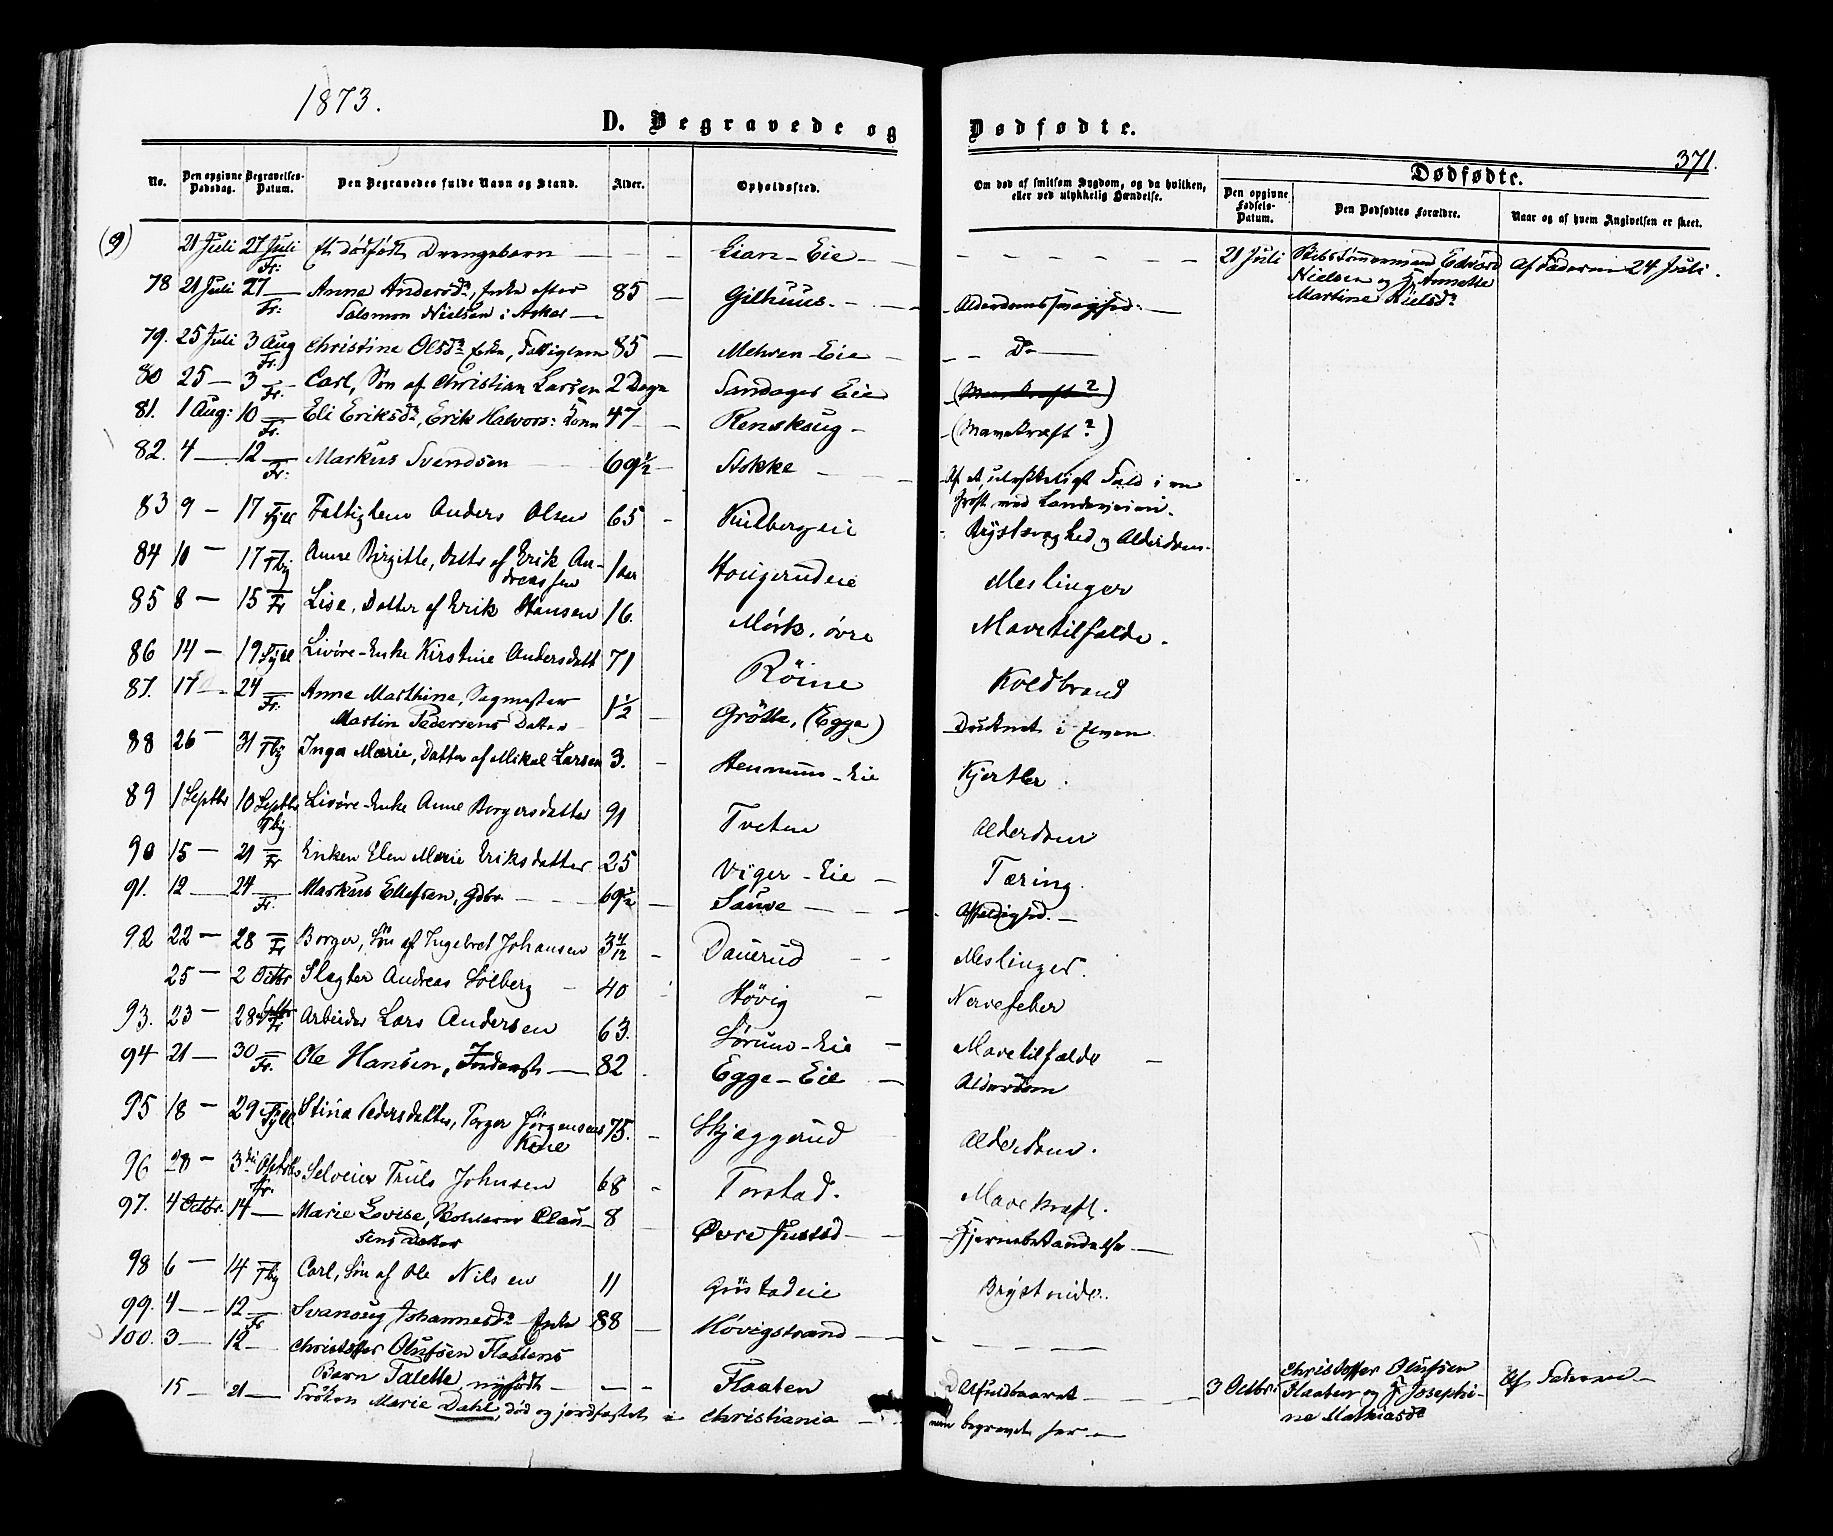 1873.
D. Begravede og Dødfødte.
371.
No. Den opgivne Dødsdag. Begravelses-Datum. Den Begravedes fulde Navn og Stand. Alder. Opholdssted. Om død af smitsom Sygdom, og da hvilken, eller ved ulykkelig Hændelse. Dødfødte. Den opgivne Fødsels-Datum. Den Dødfødtes Forældre. Naar og af hvem Angivelsen er skeet.
(9) 21 Juli 27 Juli Et dødfødt Drengebarn Lian-Eie 21 Juli Skibstømmermand Edvard Af Faderen 24 Juli.
Fr: Nielsen og H. Annette
78 21 Juli 27 Anne Andersd., Enke efter 85 Gilhuus Alderdomssvaghed. Martine Nielsd.
Fr: Salomon Nielsen i Asker
79. 25 Juli 3 Aug Christine Olsd. Enke, Fattiglem 85 Mehren-Eie Do
Fr.
80 25 3 Carl, Søn af Christian Larsen 2 Dage Sandager Eie
Fr.
81. 1 Aug: 10 Eli Eriksd., Erik Halvors: Kone 47 Renskoug (Mavekræft?)
Fr.
82. 4 12 Markus Svendsen 69½ Stokke Af et ulykkeligt Fald i en
Fr: Grøft ved Landeveien.
83 9 17 Syll Fattiglem Anders Olsen 65 Kulbergeie Brystsvaghed og Alderdom
84 10 17 Tby Anne Birgitte, Datter af Erik An- 1 aar Hougerudeie Meslinger
dreassen
85 8 15 Fr Lise, Datter af Erik Hansen 16. Mørk, øvre Mavetilfælde.
86 14 19 Syll Livøre-Enke Kirstine Andersdatt 71 Röine Koldbrand
87. 17 24 Anne Marthine, Sagmester 1½ Grötte, (Egge) Druknet i Elven
Fr. Martin Pedersens Datter
88 26 31 Tby Inga Marie, Datter af Mikal Larsen 3. Hennum-Eie Kjertler.
89 1 Septbr 10 Septbr Livøre-Enke Anne Borgersdatter 91 Tveten Alderdom
Tby
90 15 21 Fr Enken Elen Marie Eriksdatter 25 Viger-Eie Tæring.
91. 12 24 Markus Ellefsen, Gdbr. 69½ Sauve Affældighed.
Fr.
92 22 28 Fr Borger, Søn af Ingebret Johansen 3 4/12 Dauerud Meslinger.
25 2 Octbr Slagter Andreas Solberg 40 Høvig Nervefeber
93. 23 28 Septbr Arbeider Lars Andersen 63. Sørum-Eie Mavetilfælde
Fr
94 21 30 Ole Hansen, Inderst 82 Egge-Eie Alderdom
Fr.
95 18 29 Syll Stina Pedersdatter, Torger Jørgensens 75. Skjeggerud Alderdom.
Kone
96 28 3die Octbr Selveier Truls Johnsen 68 Torstad. Mavekræft.
Fr.
97. 4 Octbr. 14 Marie Lovise, Clau- 8 Øvre Justad Hjernebetændelse
sens Datter
98 6 14 Tby Carl, Søn af Ole Nilsen 11 Gustadeie Brystsvide.
99. 4 12 Svanoug Johannesd. Enke 88 Hovigstrand
Fr
100. 3 12 Christoffer Olufsen Flaatens
Barn Talette nyfødt Flaaten Ufuldbaaret 3 Octbr Christoffer Olufsen Af Faderen
15 21 Frøken Marie Dahl, død og jordfæstet i Christiania men begravet her Flaaten og H. Josephi-
ne Mathiasd.